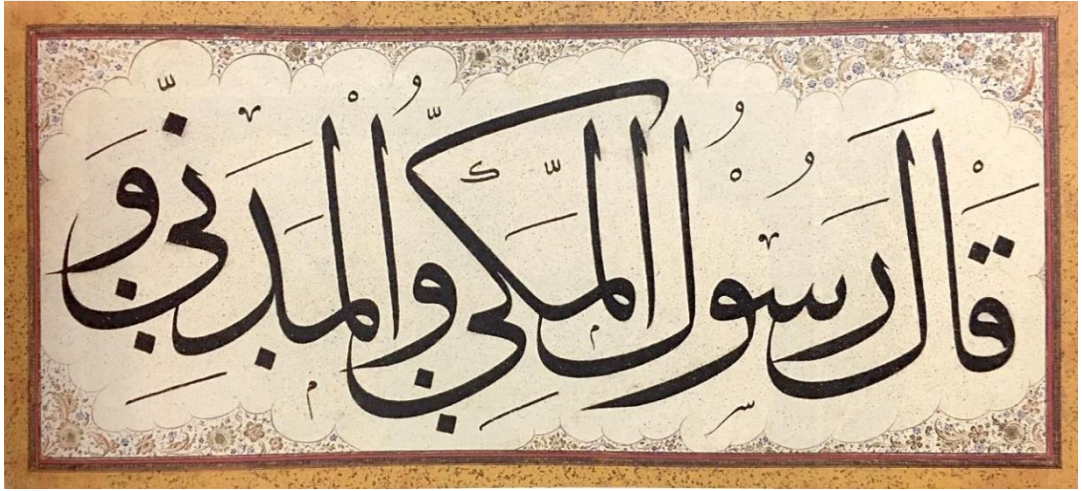 قَالَ رَسُوْلُ الْمَكِّيِّ وَالْمَدَنِيِّ وَ